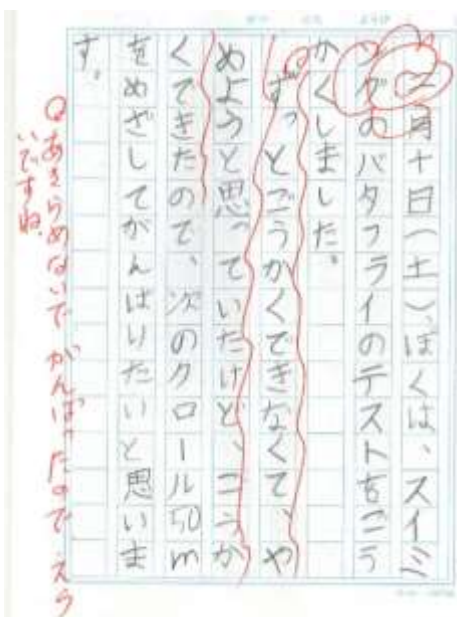 二月十日（土）、ぼくは、スイミ
ングのバタフライのテストをごう
かくしました。
ずっとごうかくできなくて、や
めようと思っていたけど、ごうか
くできたので、次のクロール50m
をめざしてがんばりたいと思いま
す。
あきらめないで がんばったので えら
いですね。